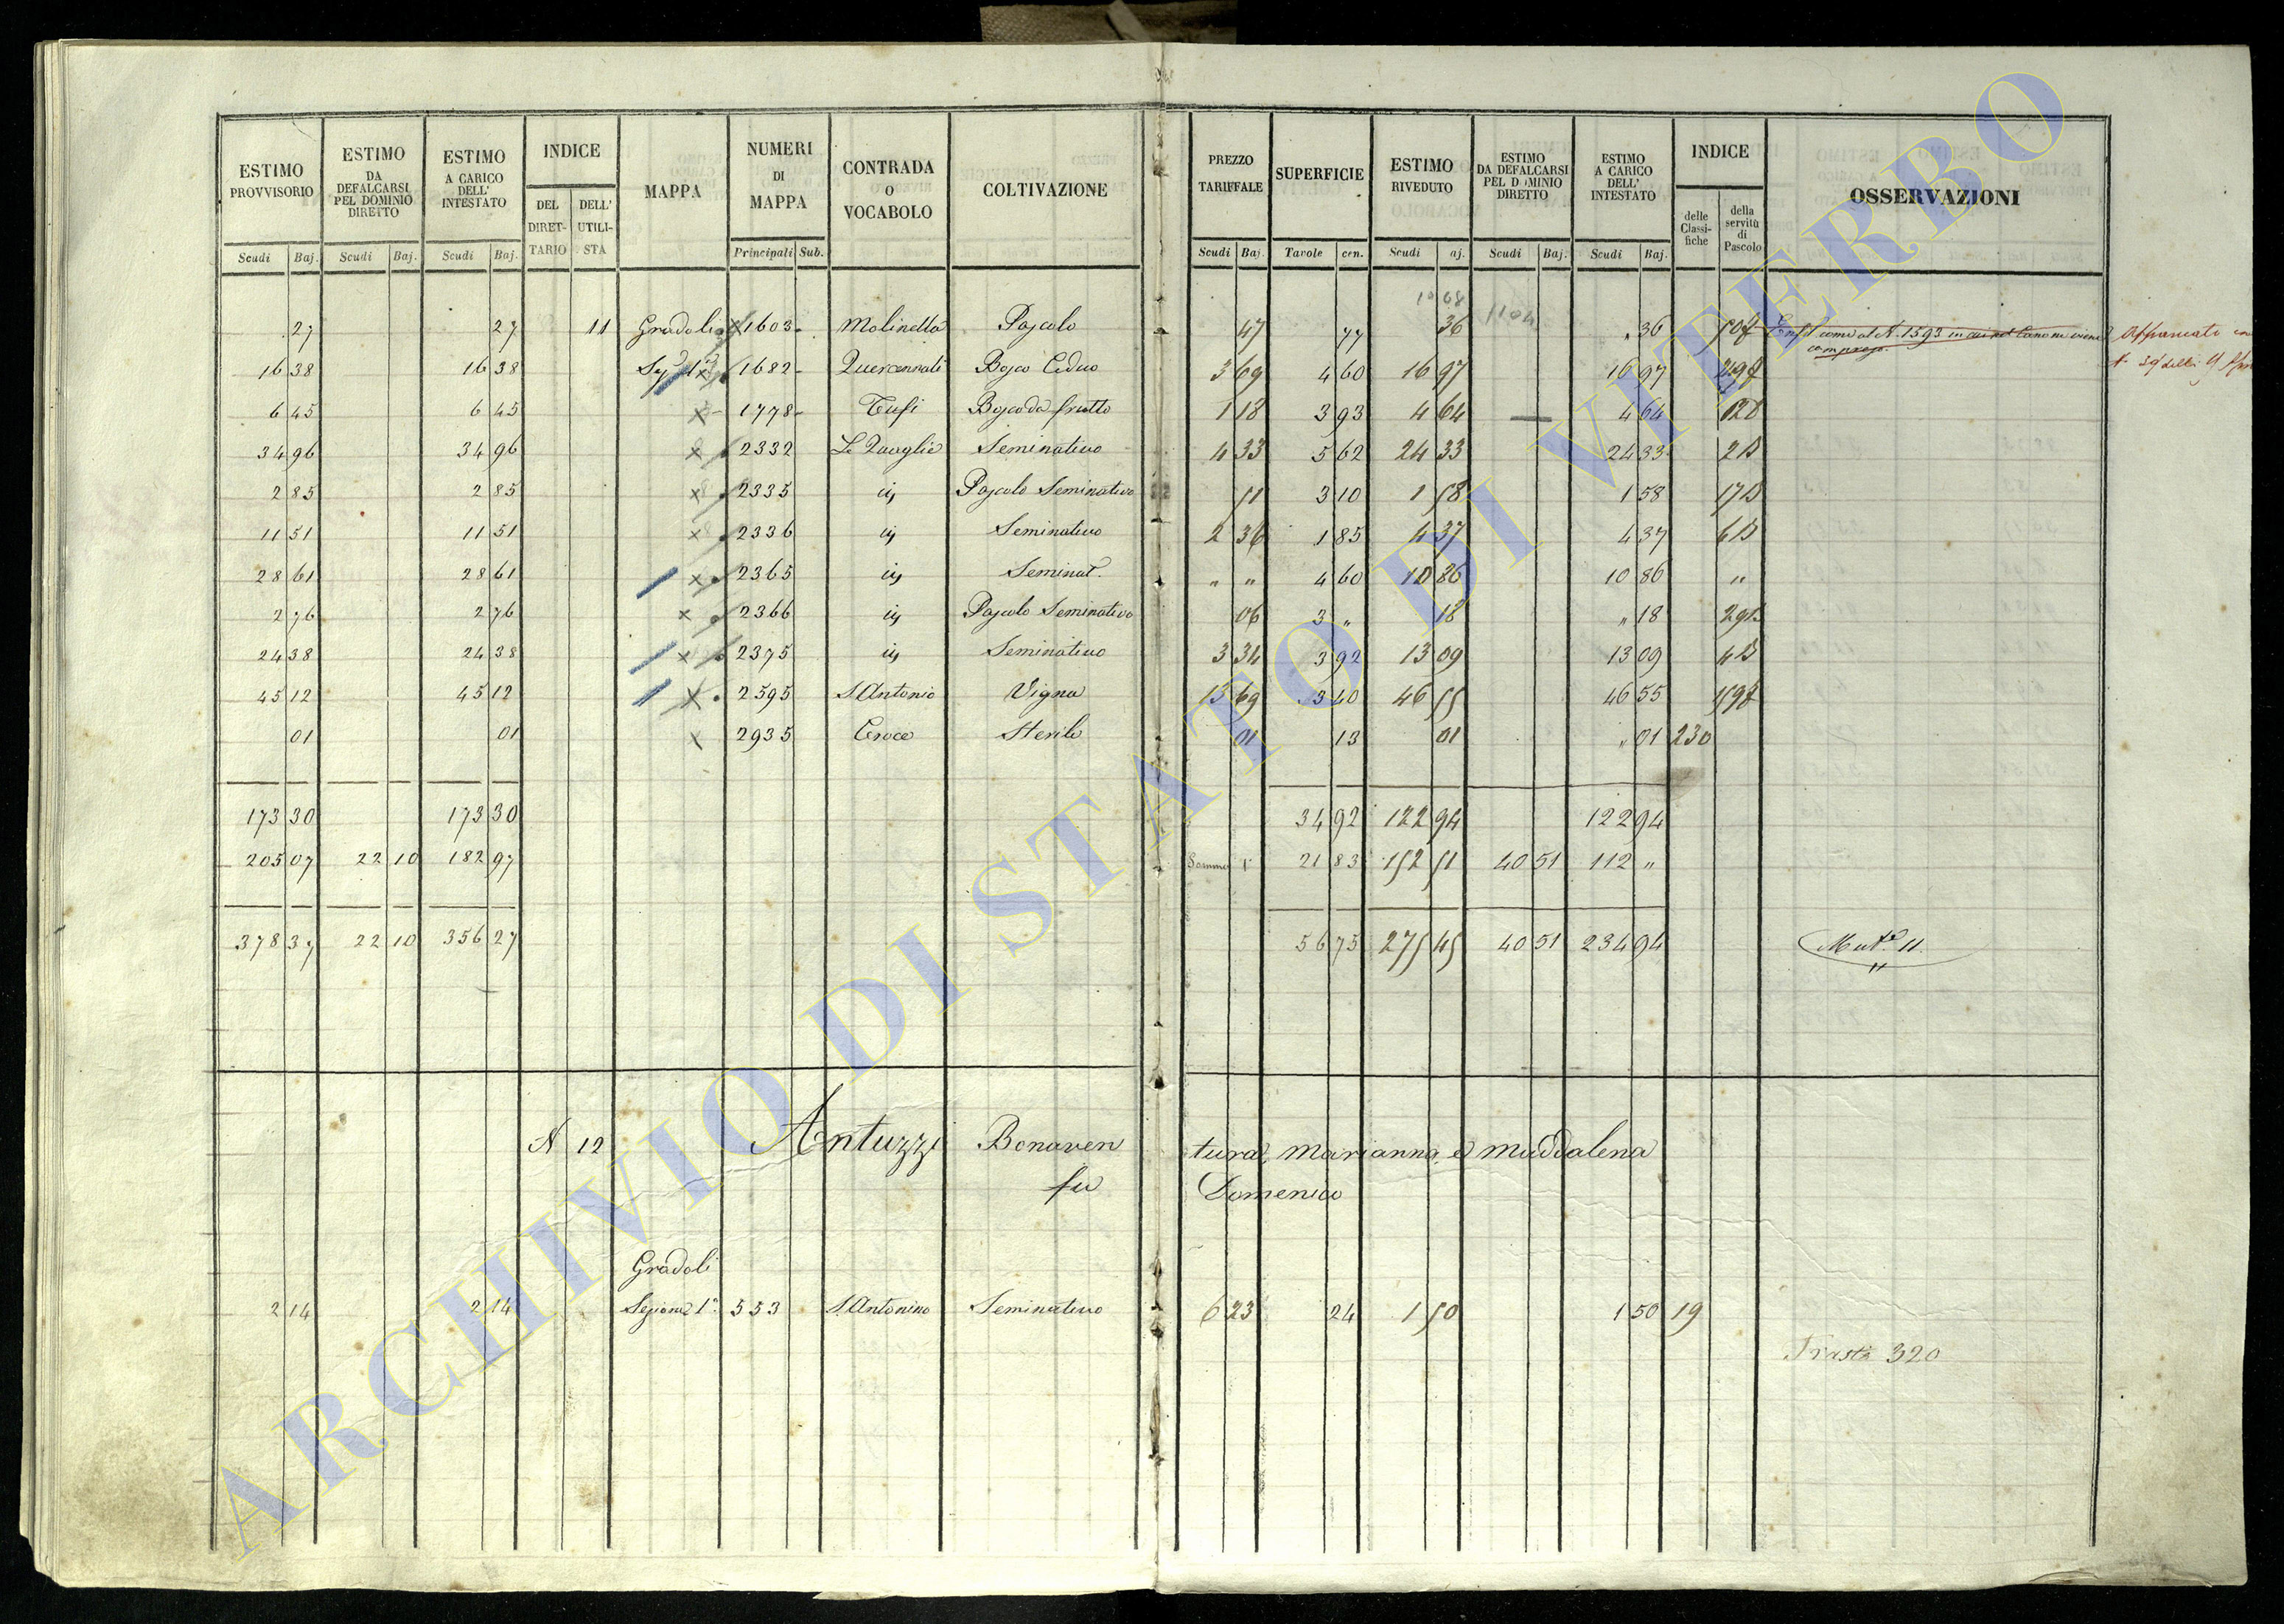 ESTIMO PROVVISORIO | ESTIMO DA DEFALCARSI PEL DOMINIO DIRETTO | ESTIMO A CARICO DELL' INTESTATO | INDICE | MAPPA | NUMERI DI MAPPA | CONTRADA O VOCABOLO | COLTIVAZIONE | PREZZO TARIFFALE | SUPERFICIE | ESTIMO RIVEDUTO | ESTIMO DA DEFALCARSI PEL DOMINIO DIRETTO | ESTIMO A CARICO DELL' INTESTATO | INDICE | OSSERVAZIONI
DEL DIRET-TARIO | DELL' UTILI-STA | delle Classi-fiche | della servitù di Pascolo
Scudi | Baj. | Scudi | Baj. | Scudi | Baj. | Principali | Sub. | Scudi | Baj. | Tavole | cen. | Scudi | aj. | Scudi | Baj. | Scudi | Baj.
1104
27 | 27 | 11 | Gradoli | 1603 | Molinella | Pascolo | 47 | 77 | 36 | " 36
16 38 | 16 38 | 1682 | Bosco Ceduo | 3 69 | 4 60 | 16 97 | 16 97
6 45 | 6 45 | 1778 | Tufi | Bosco da frutto | 1 18 | 3 93 | 4 64 | 4 64
34 96 | 34 96 | 2332 | Le Quaglie | Seminativo | 4 33 | 5 62 | 24 33 | 24 33
2 85 | 2 85 | 2335 | Pascolo Seminativo | 51 | 3 10 | 1 58 | 1 58
11 51 | 11 51 | 2336 | Seminativo | 2 36 | 1 85 | 4 37 | 4 37
28 61 | 28 61 | 2365 | Seminat. | " " | 4 60 | 10 86 | 10 86 | "
2 76 | 2 76 | 2366 | Pascolo Seminativo | 06 | 3 " | 18 | " 18
24 38 | 24 38 | 2375 | Seminativo | 3 34 | 3 92 | 13 09 | 13 09
45 12 | 45 12 | 2595 | S. Antonio | Vigna | 13 69 | 3 40 | 46 55 | 46 55
01 | 01 | 2935 | Croce | Sterile | 01 | 13 | 01 | " 01 | 230
173 30 | 173 30 | 34 92 | 122 94 | 122 94
205 07 | 22 10 | 182 97 | Somma | 21 83 | 152 51 | 40 51 | 112 "
378 37 | 22 10 | 356 27 | 56 75 | 275 45 | 40 51 | 234 94 | Mut.e 11
N 12 Antuzzi Bonaventura, Marianna, e Maddalena
fu Domenico
Gradoli
2 14 | 2 14 | Sezione 1a | 553 | S. Antonino | Seminativo | 6 23 | 24 | 1 50 | 1 50 | 19
320
ARCHIVIO DI STATO DI VITERBO